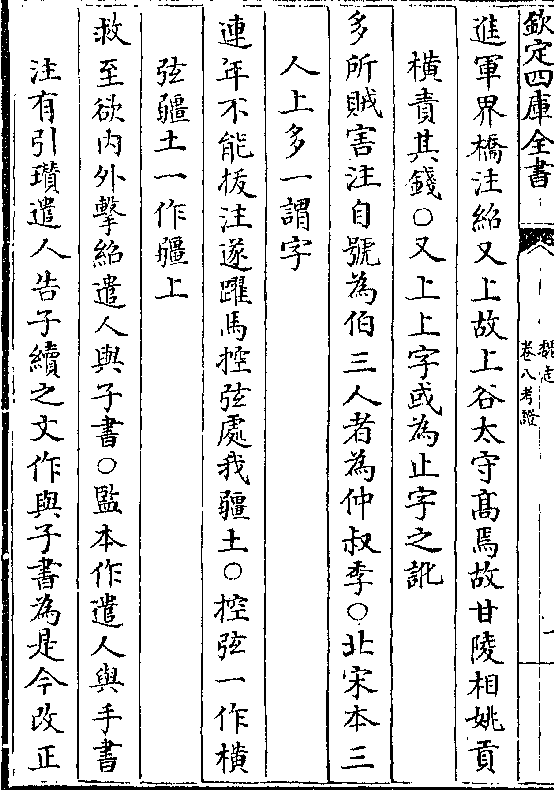 欽定四庫全書
魏志
卷八考證
進軍界橋注紹又上故上谷太守髙焉故甘陵相姚貢
横責其錢○又上上字或為止字之訛
多所賊害注自號為伯三人者為仲叔季○北宋本三
人上多一謂字
連年不能拔注遂躍馬控弦處我疆土○控弦一作横
弦疆土一作疆上
救至欲内外擊紹遣人與子書○監本作遣人與手書
注有引瓉遣人告子續之文作與子書為是今改正